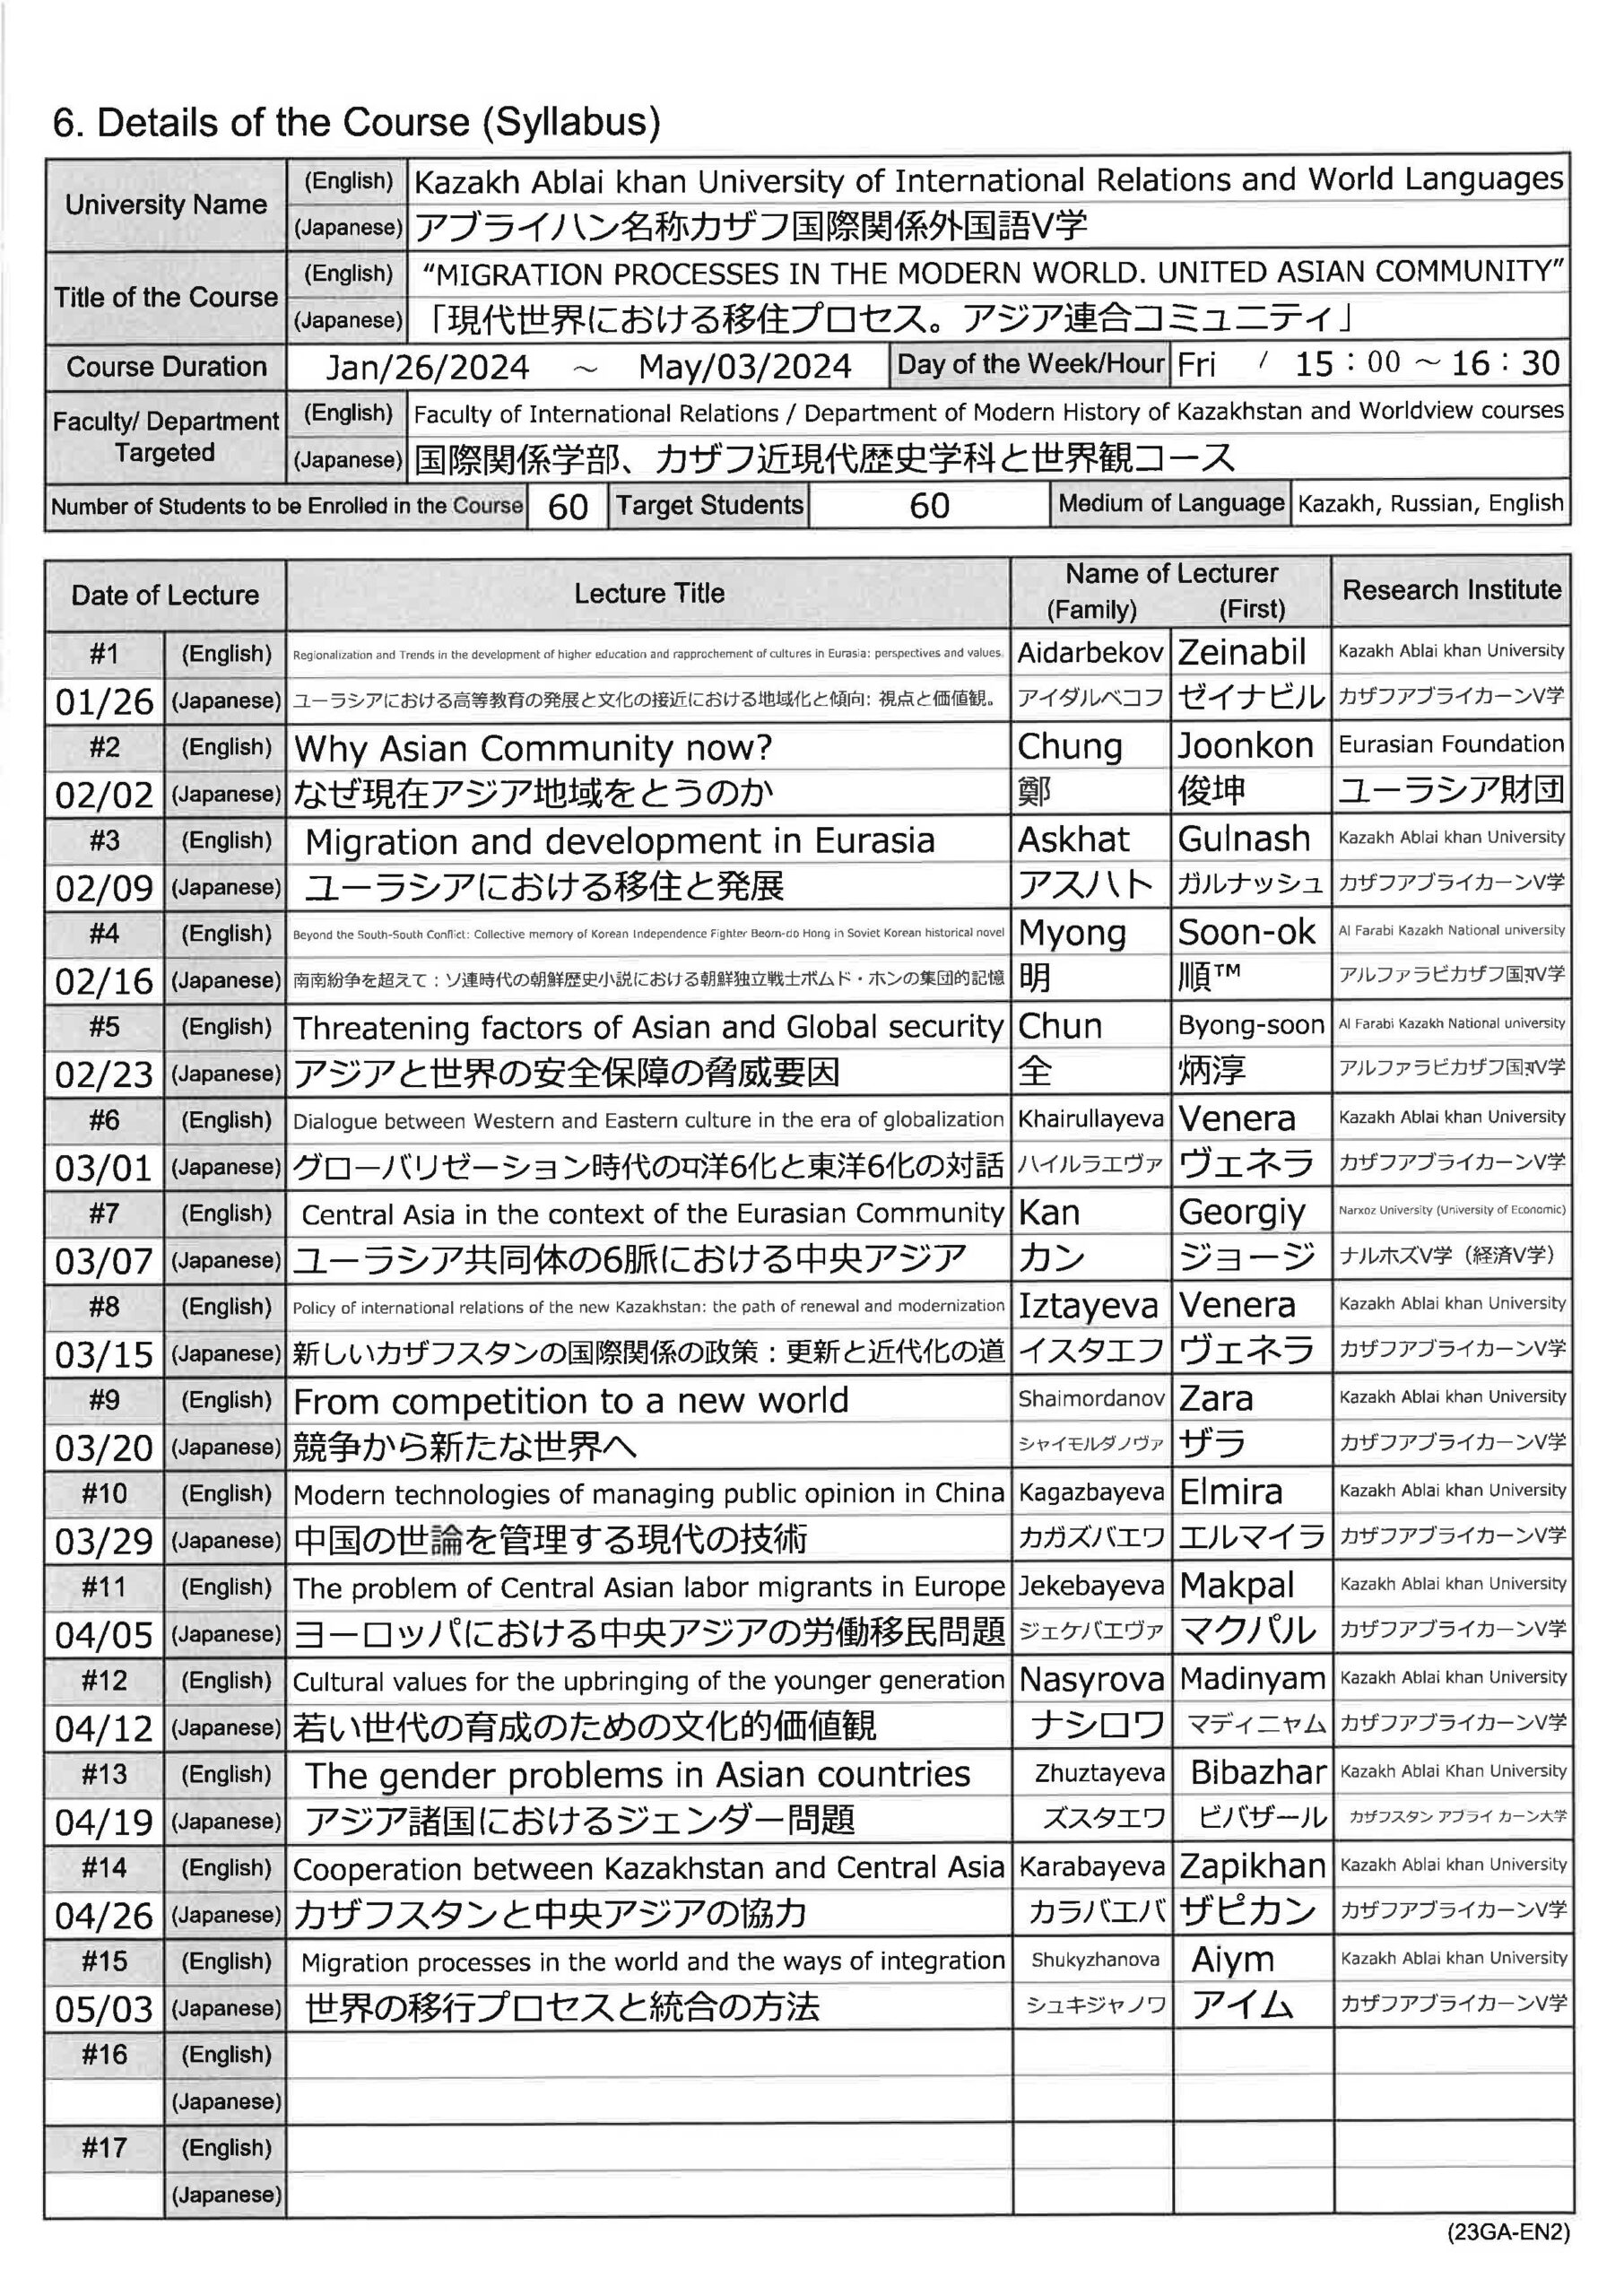 6. Details of the Course (Syllabus)
University Name (English) Kazakh Ablai khan University of International Relations and World Languages
(Japanese) アブライハン名称カザフ国際関係外国語V学
Title of the Course (English) “MIGRATION PROCESSES IN THE MODERN WORLD. UNITED ASIAN COMMUNITY”
(Japanese) 「現代世界における移住プロセス。アジア連合コミュニティ」
Course Duration Jan/26/2024 ～ May/03/2024 Day of the Week/Hour Fri / 15：00 ～ 16：30
Faculty/ Department Targeted (English) Faculty of International Relations / Department of Modern History of Kazakhstan and Worldview courses
(Japanese) 国際関係学部、カザフ近現代歴史学科と世界観コース
Number of Students to be Enrolled in the Course 60 Target Students 60 Medium of Language Kazakh, Russian, English
Date of Lecture Lecture Title Name of Lecturer (Family) (First) Research Institute
#1 (English) Regionalization and Trends in the development of higher education and rapprochement of cultures in Eurasia: perspectives and values. Aidarbekov Zeinabil Kazakh Ablai khan University
01/26 (Japanese) ユーラシアにおける高等教育の発展と文化の接近における地域化と傾向: 視点と価値観。 アイダルベコフ ゼイナビル カザフアブライカーンV学
#2 (English) Why Asian Community now? Chung Joonkon Eurasian Foundation
02/02 (Japanese) なぜ現在アジア地域をとうのか 鄭 俊坤 ユーラシア財団
#3 (English) Migration and development in Eurasia Askhat Gulnash Kazakh Ablai khan University
02/09 (Japanese) ユーラシアにおける移住と発展 アスハト ガルナッシュ カザフアブライカーンV学
#4 (English) Beyond the South-South Conflict: Collective memory of Korean Independence Fighter Beom-do Hong in Soviet Korean historical novel Myong Soon-ok Al Farabi Kazakh National university
02/16 (Japanese) 南南紛争を超えて：ソ連時代の朝鮮歴史小説における朝鮮独立戦士ボムド・ホンの集団的記憶 明 順™ アルファラビカザフ国V学
#5 (English) Threatening factors of Asian and Global security Chun Byong-soon Al Farabi Kazakh National university
02/23 (Japanese) アジアと世界の安全保障の脅威要因 全 炳淳 アルファラビカザフ国V学
#6 (English) Dialogue between Western and Eastern culture in the era of globalization Khairullayeva Venera Kazakh Ablai khan University
03/01 (Japanese) グローバリゼーション時代の洋6化と東洋6化の対話 ハイルラエヴァ ヴェネラ カザフアブライカーンV学
#7 (English) Central Asia in the context of the Eurasian Community Kan Georgiy Narxoz University (University of Economic)
03/07 (Japanese) ユーラシア共同体の6脈における中央アジア カン ジョージ ナルホズV学（経済V学）
#8 (English) Policy of international relations of the new Kazakhstan: the path of renewal and modernization Iztayeva Venera Kazakh Ablai khan University
03/15 (Japanese) 新しいカザフスタンの国際関係の政策：更新と近代化の道 イスタエフ ヴェネラ カザフアブライカーンV学
#9 (English) From competition to a new world Shaimordanov Zara Kazakh Ablai khan University
03/20 (Japanese) 競争から新たな世界へ シャイモルダノヴァ ザラ カザフアブライカーンV学
#10 (English) Modern technologies of managing public opinion in China Kagazbayeva Elmira Kazakh Ablai khan University
03/29 (Japanese) 中国の世論を管理する現代の技術 カガズバエワ エルマイラ カザフアブライカーンV学
#11 (English) The problem of Central Asian labor migrants in Europe Jekebayeva Makpal Kazakh Ablai khan University
04/05 (Japanese) ヨーロッパにおける中央アジアの労働移民問題 ジェケバエヴァ マクパル カザフアブライカーンV学
#12 (English) Cultural values for the upbringing of the younger generation Nasyrova Madinyam Kazakh Ablai khan University
04/12 (Japanese) 若い世代の育成のための文化的価値観 ナシロワ マディニャム カザフアブライカーンV学
#13 (English) The gender problems in Asian countries Zhuztayeva Bibazhar Kazakh Ablai Khan University
04/19 (Japanese) アジア諸国におけるジェンダー問題 ズスタエワ ビバザール カザフスタン アブライ カーン大学
#14 (English) Cooperation between Kazakhstan and Central Asia Karabayeva Zapikhan Kazakh Ablai khan University
04/26 (Japanese) カザフスタンと中央アジアの協力 カラバエバ ザピカン カザフアブライカーンV学
#15 (English) Migration processes in the world and the ways of integration Shukyzhanova Aiym Kazakh Ablai khan University
05/03 (Japanese) 世界の移行プロセスと統合の方法 シュキジャノワ アイム カザフアブライカーンV学
#16 (English)
(Japanese)
#17 (English)
(Japanese)
(23GA-EN2)